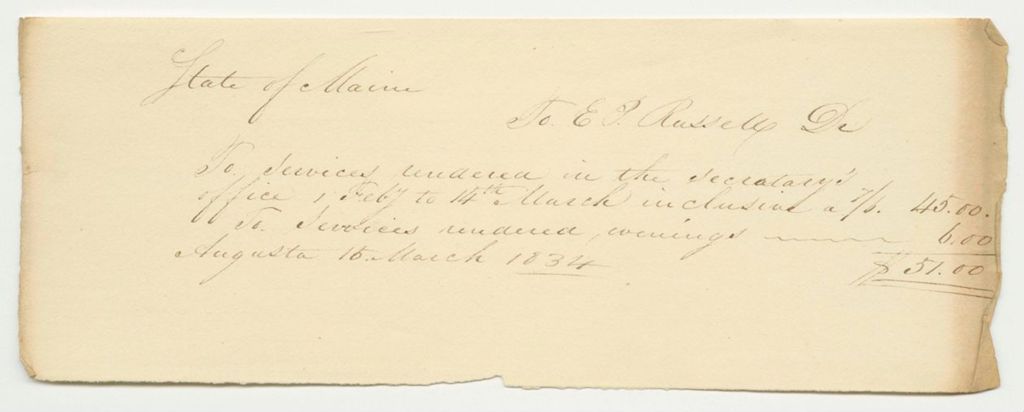 State of Maine
To E P. Russell Dr
To Services rendered in the Secratary's
office 1 Feby to 14th March inclusive a 7/6. 45.00.
To Services rendered evenings 6.00
Augusta 15. March 1834 $ 51.00